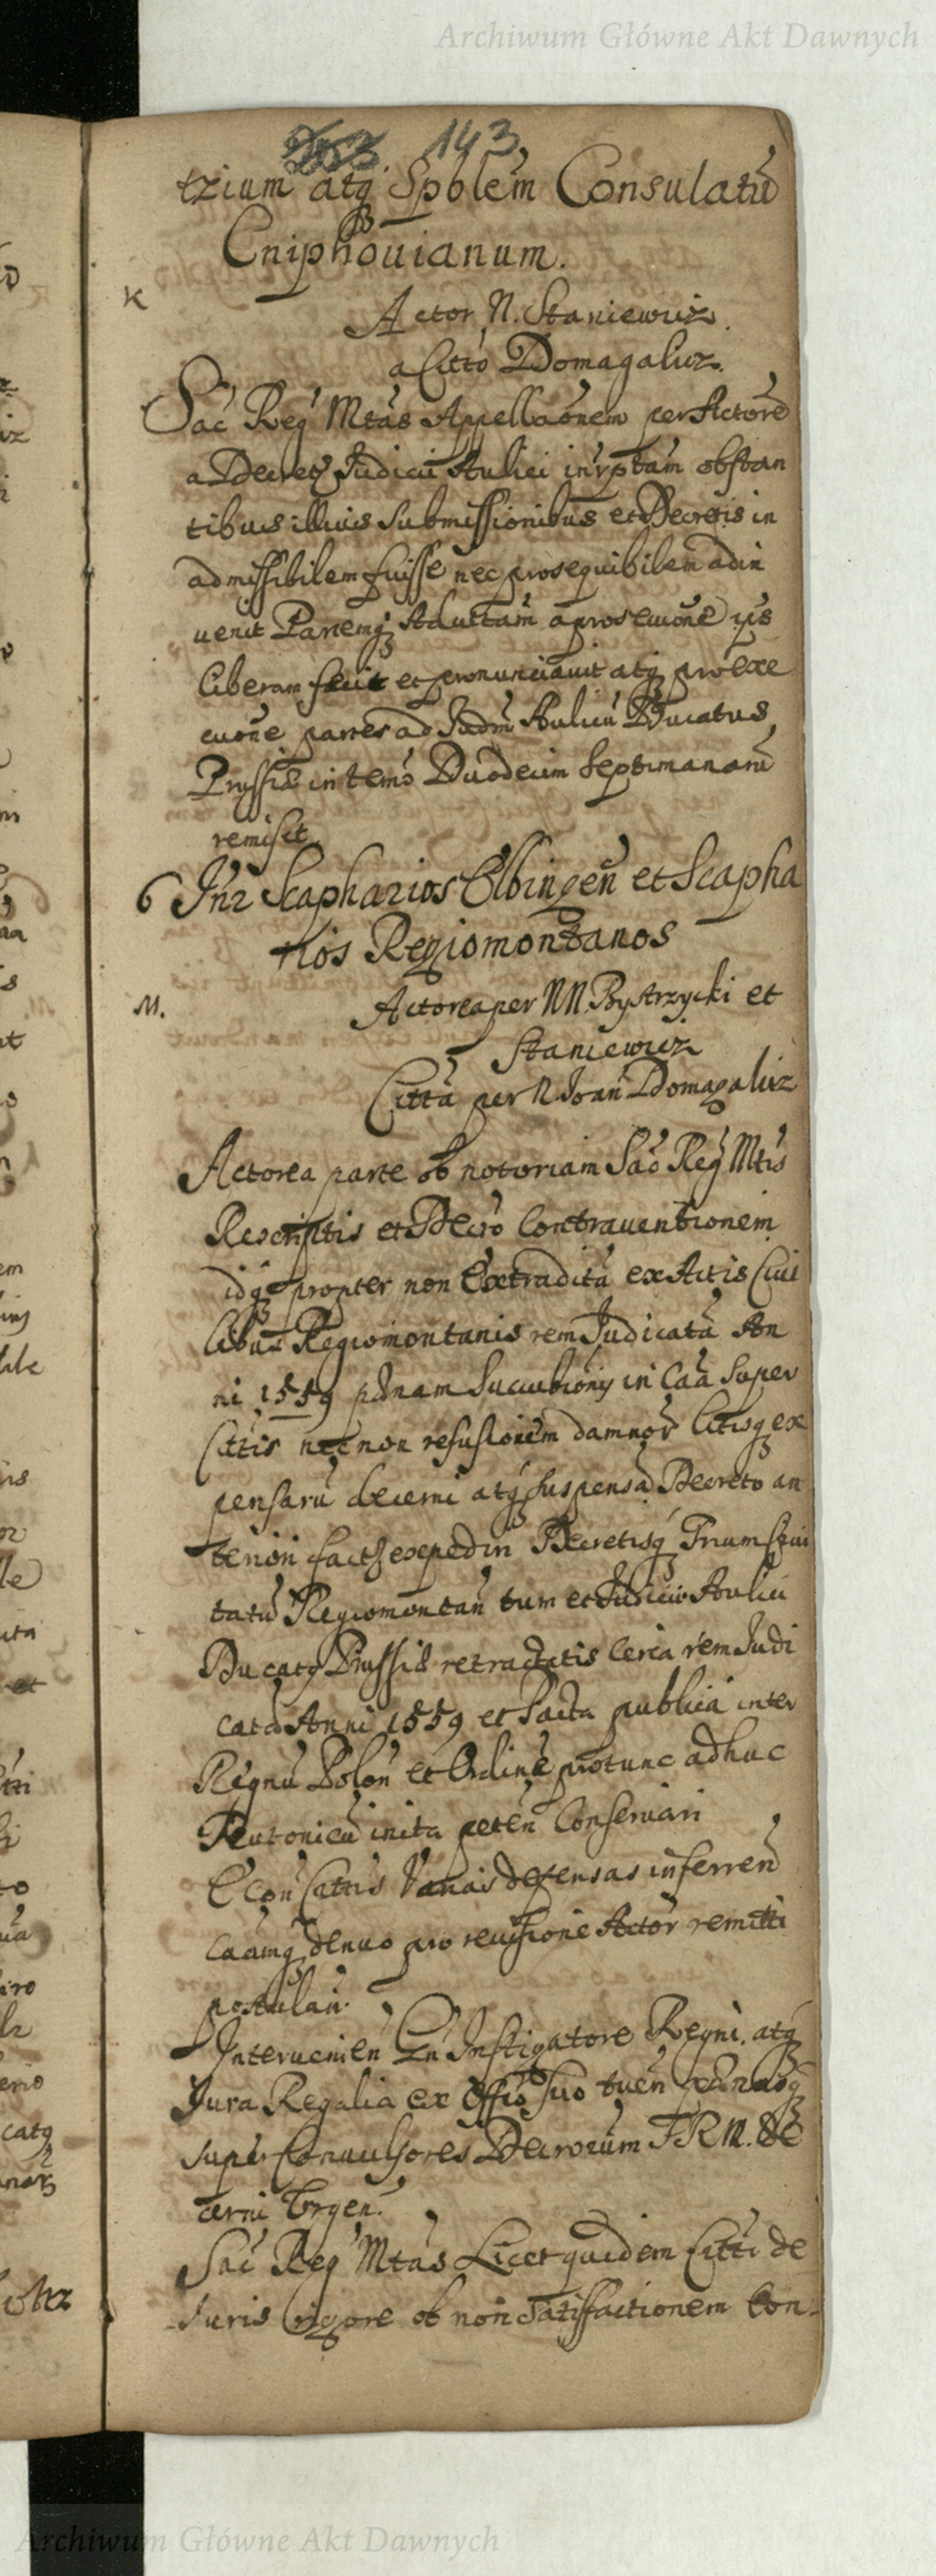 Archiwum Główne Akt Dawnych
143
tzium atq Spblem Consulatũ
Cniphouianum.
K
Actor N. Staniewicz
a Citto Domagalicz
Sac Reg Mtas Appellaonem per Actore
a Decreto Judicii Aulici inrptam obstan
tibus illius submissionibus et Decretis in
admissibilem fuisse nec prosequibilem adin
venit Partemq Adcitam a prosecuone ijs
liberam fecit et pronunciauit atq pro exe
cuone partes ad Judm Aulicũ Ducatus
Prussiæ in termo Duodecim Septimanarũ
remisit
6 Inr Scapharios Elbingen et Scapha
rios Regiomontanos
M.
Actorea per NN Bystrzycki et
Staniewicz
Citta per N Joan Domagalicz
Actorea parte ob notoriam Sac Reg Mtis
Rescriptis et Decro Contrauentionem
idq propter non Extraditã ex Actis Ciui
libus Regiomontanis rem Judicatã An
ni 1559 pœnam succubionis in Caa super
Cittis nec non refusionem damnor Litisq ex
pensarũ decerni atq suspensa Decreto an
teriori facti expediri Decretisq Trium Ciui
tatũ Regiomontan tum et Judicii Aulici
Ducatq Prussiæ retractatis Circa rem Judi
catã Anni 1559 et Pacta publica inter
Regnũ Polon et Ordinẽ protunc adhuc
Teutonicũ inita peten Conseruari
E con Cattis Varias defensas inferren
Caamq denuo pro reuisione Actor remitti
postulan.
Interuenien Gn Instigatore Regni atq
Jura Regalia ex Offio suo tuen pœnasq
super Conuulsores Decrorum S R M. de
cerni Vrgen.
Sac Reg Mtas Licet quidem Citti de
Juris rigore ob non satisfactionem Con-
Archiwum Główne Akt Dawnych